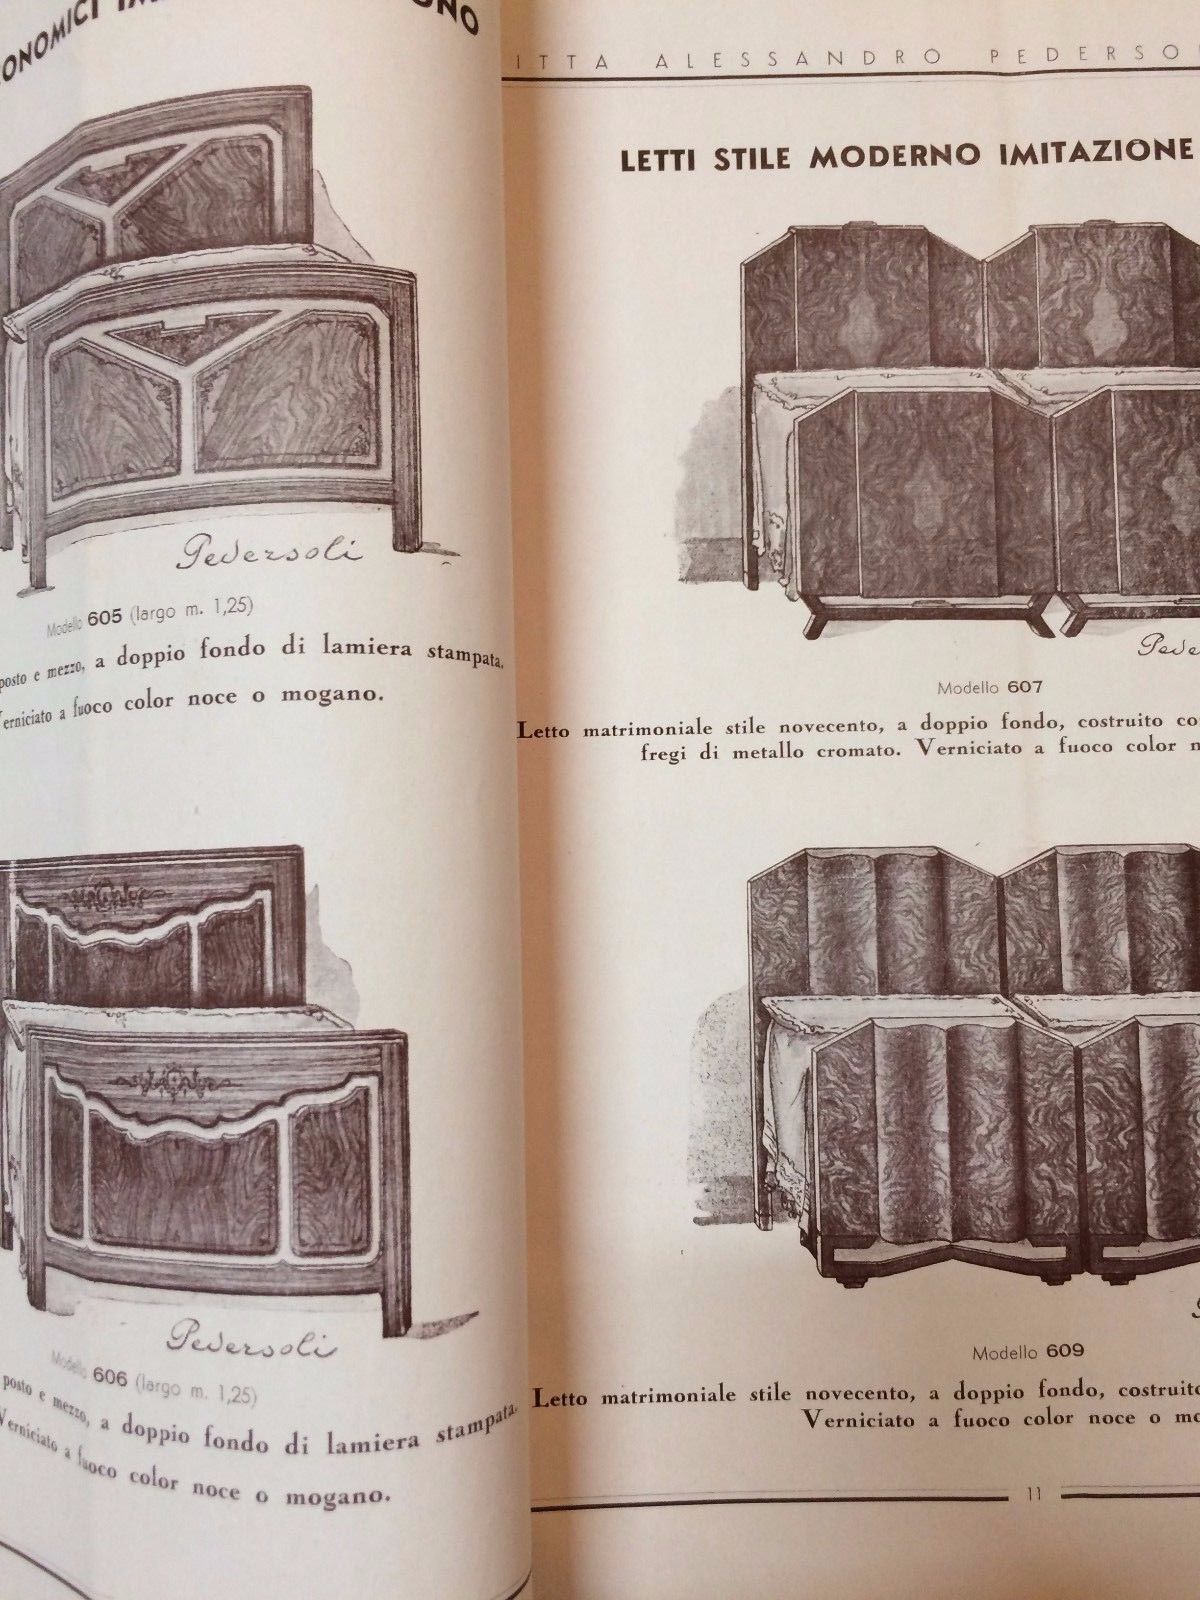 ONOMICI
Pedersoli
Modello 605 (largo m. 1,25)
posto e mezzo, a doppio fondo di lamiera stampata.
Verniciato a fuoco color noce o mogano.
Pedersoli
Modello 606 (largo m. 1,25)
posto e mezzo, a doppio fondo di lamiera stampata.
Verniciato a fuoco color noce o mogano.
ITTA ALESSANDRO PEDERSO
LETTI STILE MODERNO IMITAZIONE
Pede
Modello 607
Letto matrimoniale stile novecento, a doppio fondo, costruito co
fregi di metallo cromato. Verniciato a fuoco color n
Modello 609
Letto matrimoniale stile novecento, a doppio fondo, costruito
Verniciato a fuoco color noce o mo
11